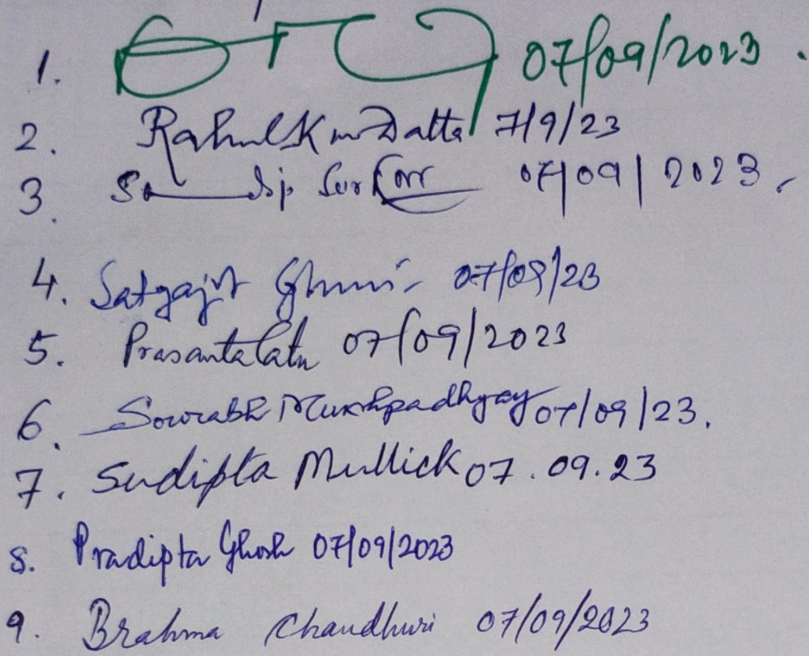 1. 07/09/2023.
2. Rahul Km Datta 7/9/23
3. 07/09/2023.
4. Satyajit 07/09/23
5. Prasanta 07/09/2023
6. Sourabh Mukhpadhyay 07/09/23.
7. Sudipta Mullick 07.09.23
8. Pradipta Ghosh 07/09/2023
9. Brahma Chaudhuri 07/09/2023